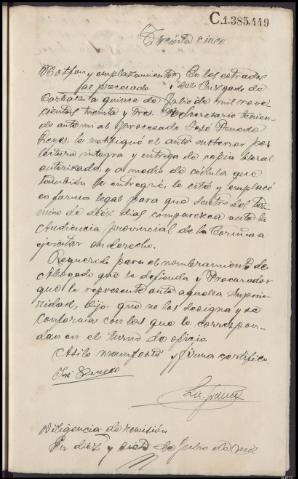 C.1.385.449
Treinta cinco
Notificon y emplazamiento En los estrados
al procesado del Juzgado de
Carballo a quince de Julio de mil nove-
cientos treinta y tres. El Secretario tenien-
do ante mi al procesado José
le notifiqué el auto anterior por
lectura integra y entrega de copia literal
autorizada, y al medio de cédula que
tambien le entregué, le cité y emplacé
en forma legal para que dentro del ter-
mino de diez dias comparezca ante la
Audiencia provincial de la Coruña a
ejercitar su derecho.
Requerido para el nombramiento de
Abogado que le defienda y Procurador
que le represente ante aquella Superio-
ridad, dijo: que no los designa y se
conforma con los que le correspon-
dan en el turno de oficio
Asi lo manifestó y firma certifico
José
Diligencia de remisión
En diez y siete de Julio de mil